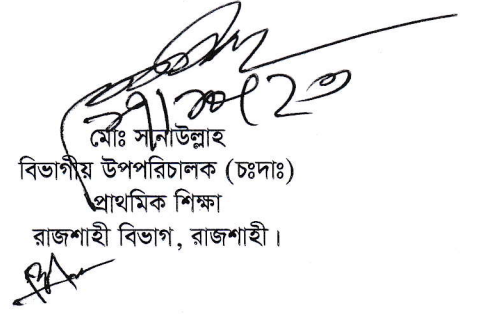 মোঃ সানাউল্লাহ
বিভাগীয় উপপরিচালক (চঃদাঃ)
প্রাথমিক শিক্ষা
রাজশাহী বিভাগ, রাজশাহী।